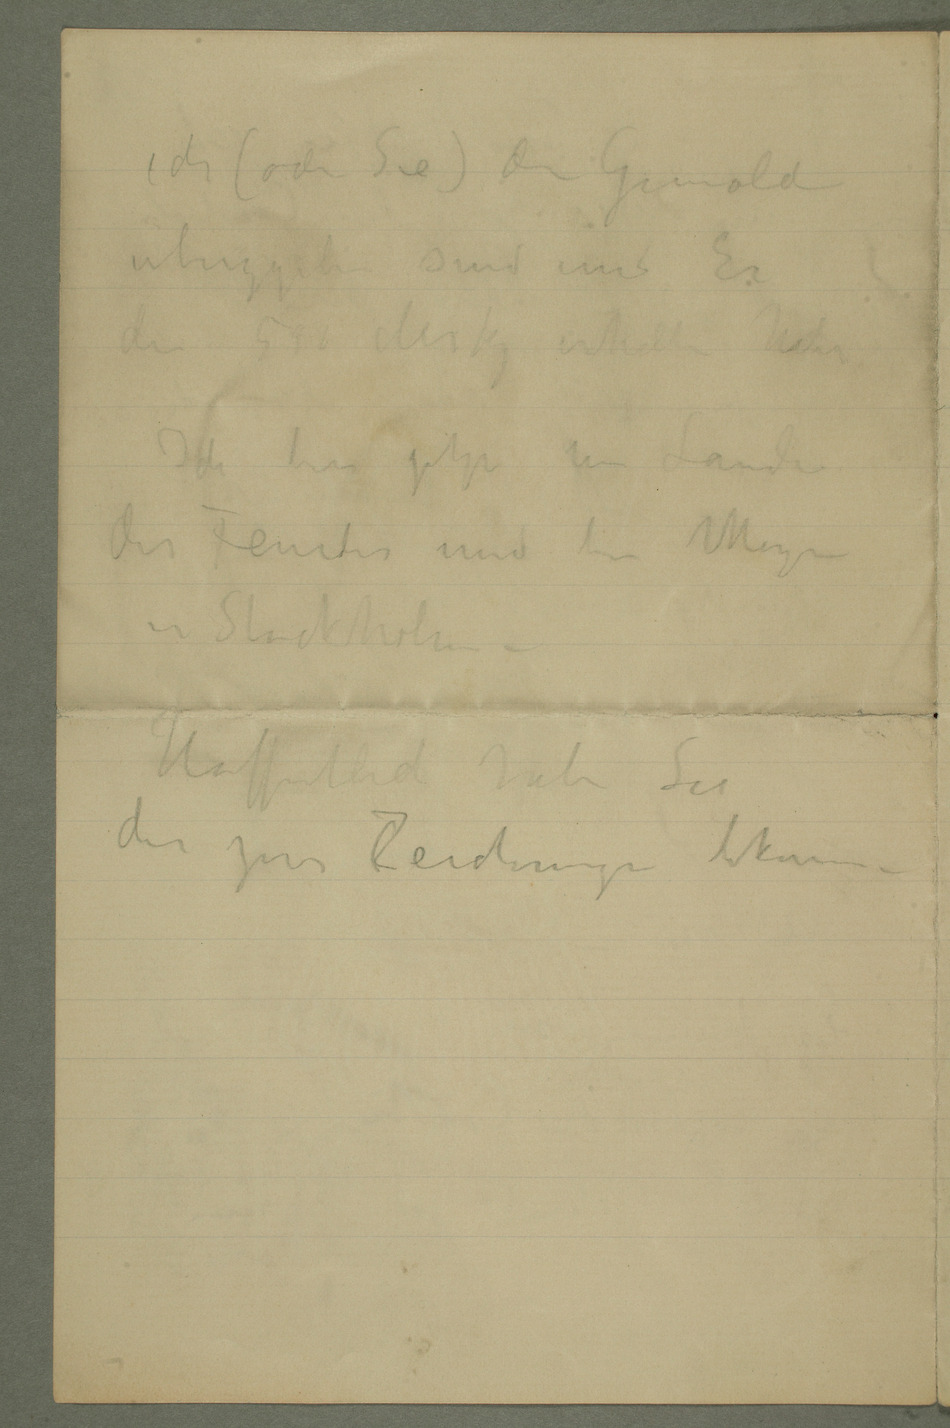 ich (oder Sie) den Gemälde
übergeben sind und Er
die 500 Mark erhalten haben
Ich bin jetzt im Lande
des Feindes und bin Morgen
in Stockholm –
Hoffentlich haben Sie
die zwei Zeichnungen bekommen –